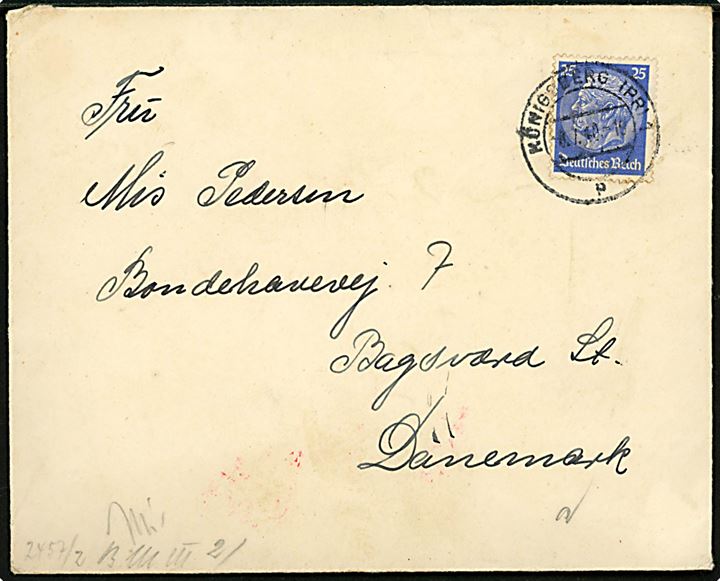 25 25
KÖNIGSBERG (PR) 7
Deutsches Reich
P
Fru
Mis Pedersen
Bondehavevej 7
Bagsværd St.
Dänemark
2457/2